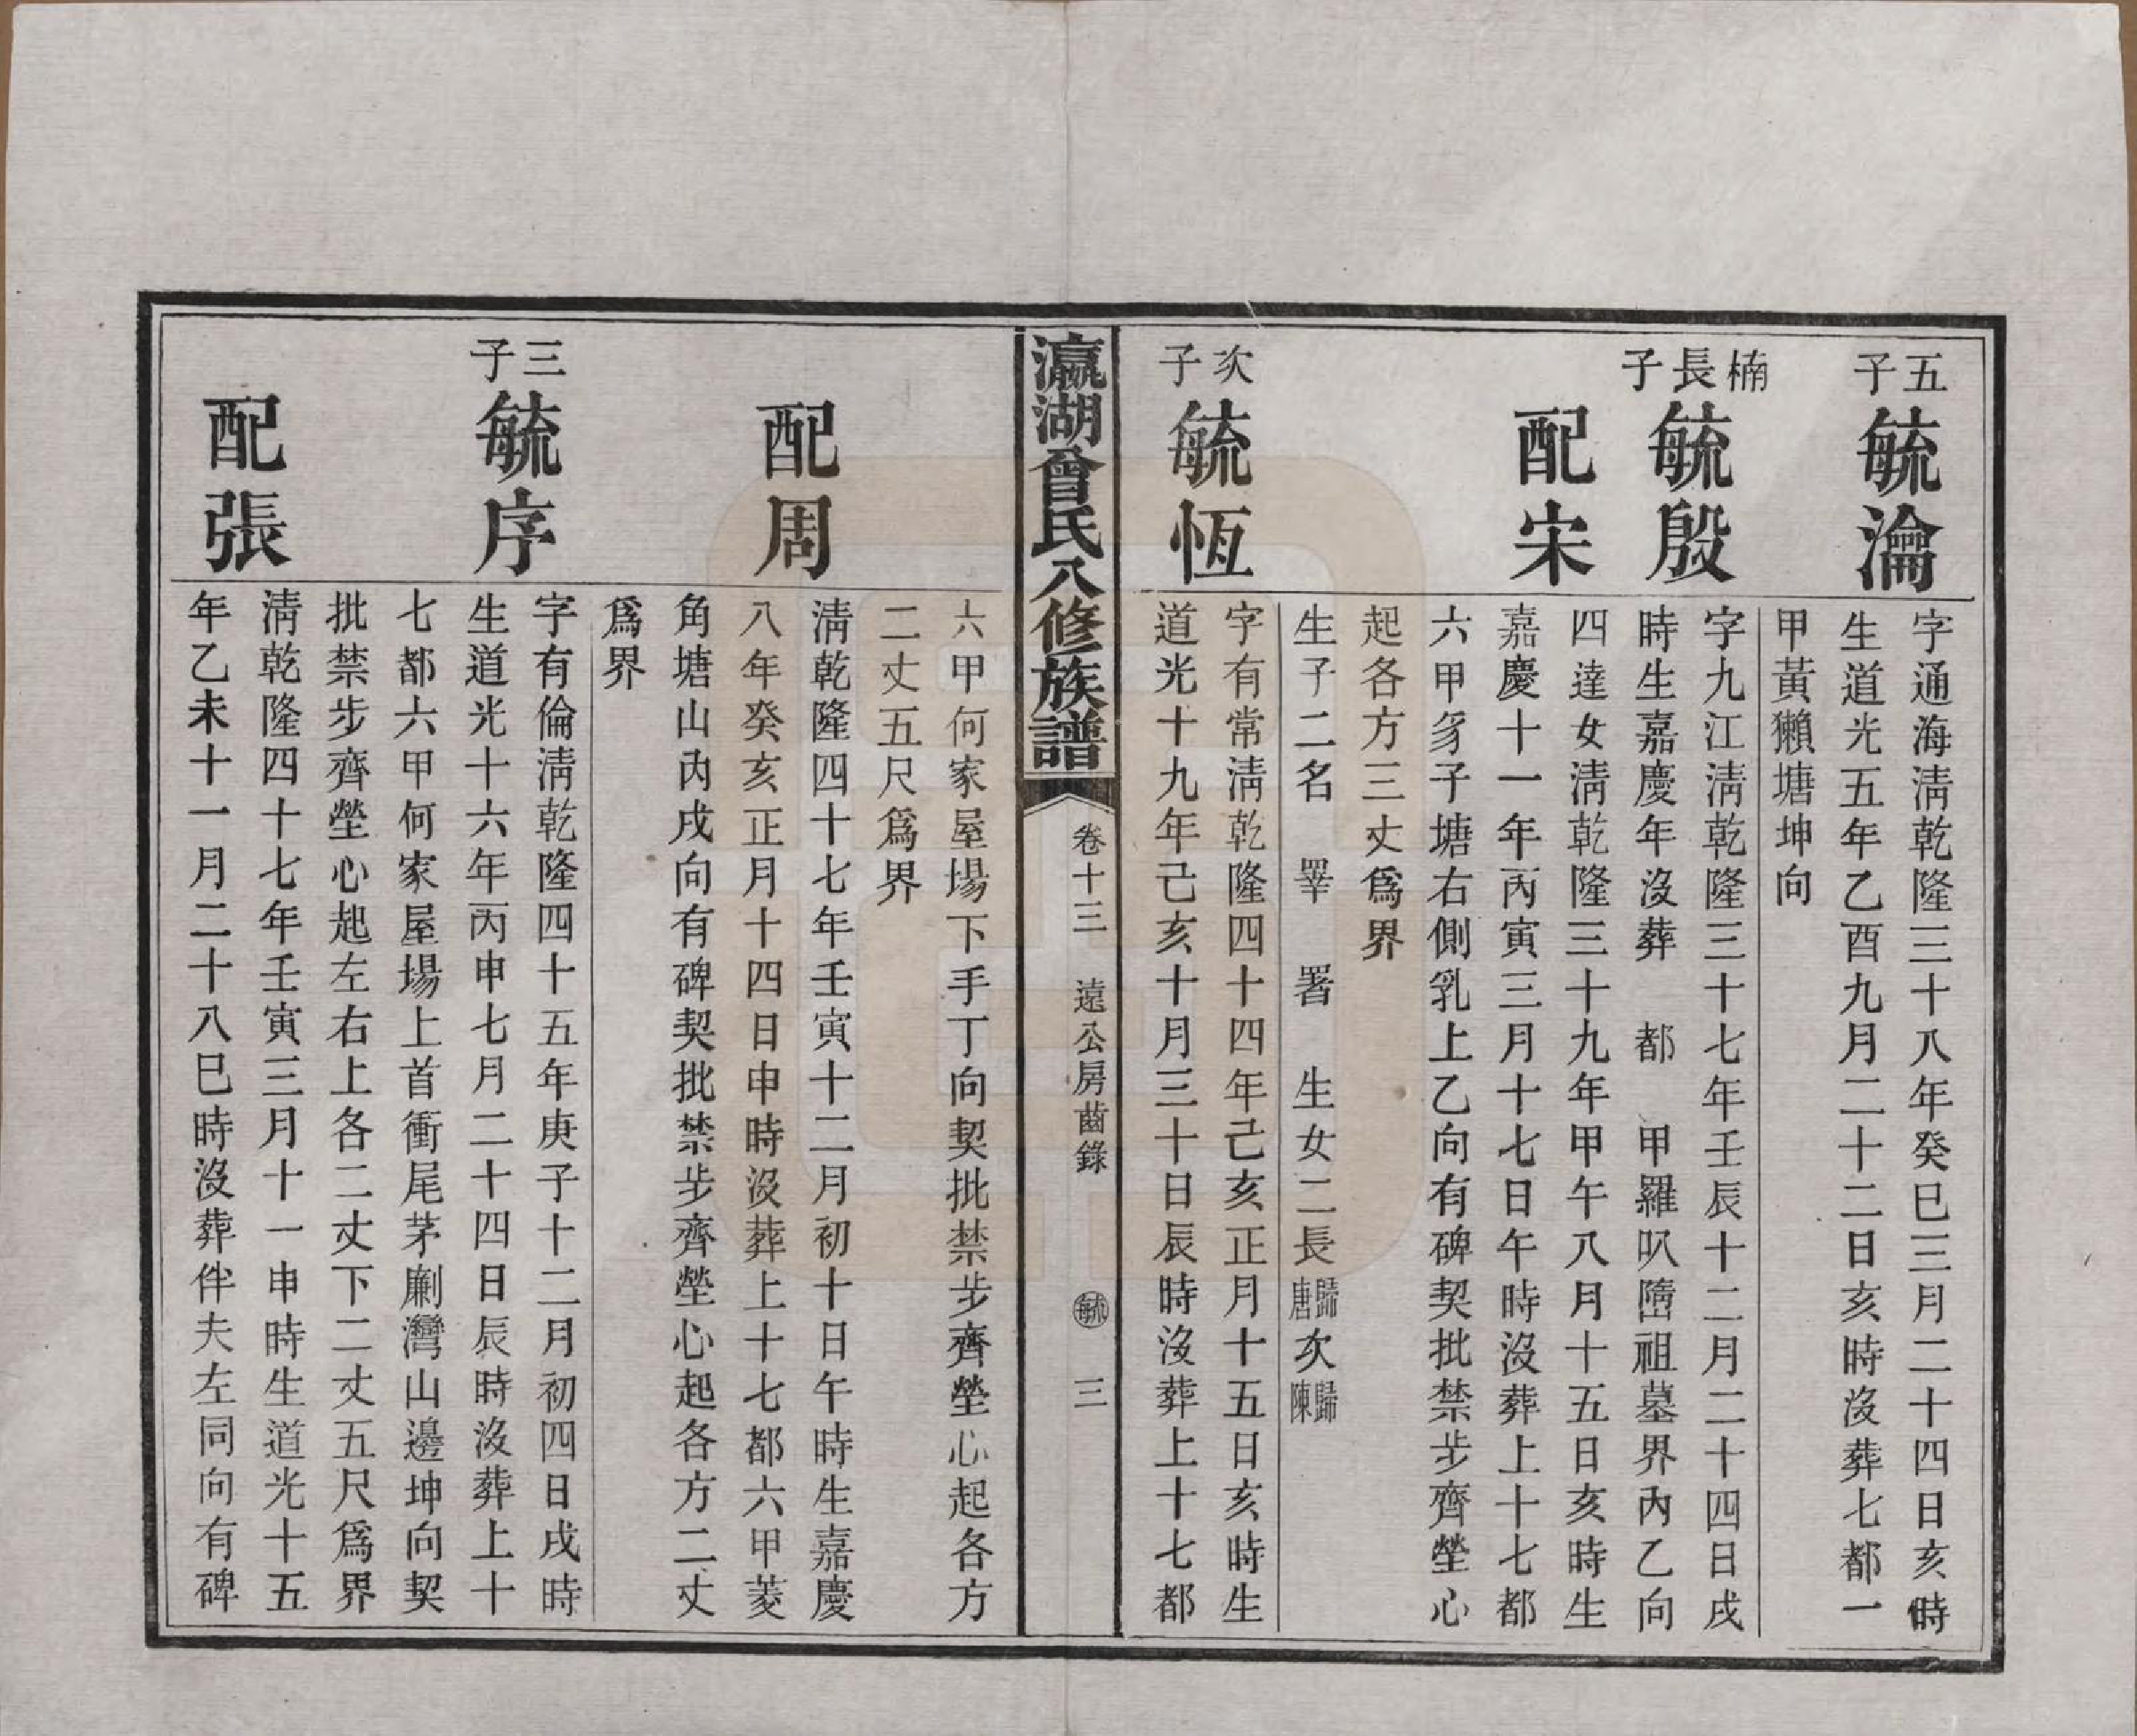 五子
毓瀹
字通海淸乾隆三十八年癸巳三月二十四日亥時
生道光五年乙酉九月二十二日亥時沒葬七都一
甲黃獺塘坤向
楠長子
毓殷
字九江淸乾隆三十七年壬辰十二月二十四日戌
時生嘉慶年沒葬　都　甲羅㕥㠢祖墓界內乙向
配宋
四達女淸乾隆三十九年甲午八月十五日亥時生
嘉慶十一年丙寅三月十七日午時沒葬上十七都
六甲豸子塘右側乳上乙向有碑契批禁步齊塋心
起各方三丈爲界
生子二名　睪　署　生女二長歸唐次歸陳
次子
毓恆
字有常淸乾隆四十四年己亥正月十五日亥時生
道光十九年己亥十月三十日辰時沒葬上十七都
瀛湖曾氏八修族譜
卷十三　遠公房齒錄　毓　三
六甲何家屋場下手丁向契批禁步齊塋心起各方
二丈五尺爲界
配周
淸乾隆四十七年壬寅十二月初十日午時生嘉慶
八年癸亥正月十四日申時沒葬上十七都六甲菱
角塘山內戌向有碑契批禁步齊塋心起各方二丈
爲界
三子
毓序
字有倫淸乾隆四十五年庚子十二月初四日戌時
生道光十六年丙申七月二十四日辰時沒葬上十
七都六甲何家屋場上首衝尾茅劘灣山邊坤向契
批禁步齊塋心起左右上各二丈下二丈五尺爲界
配張
淸乾隆四十七年壬寅三月十一申時生道光十五
年乙未十一月二十八巳時沒葬伴夫左同向有碑